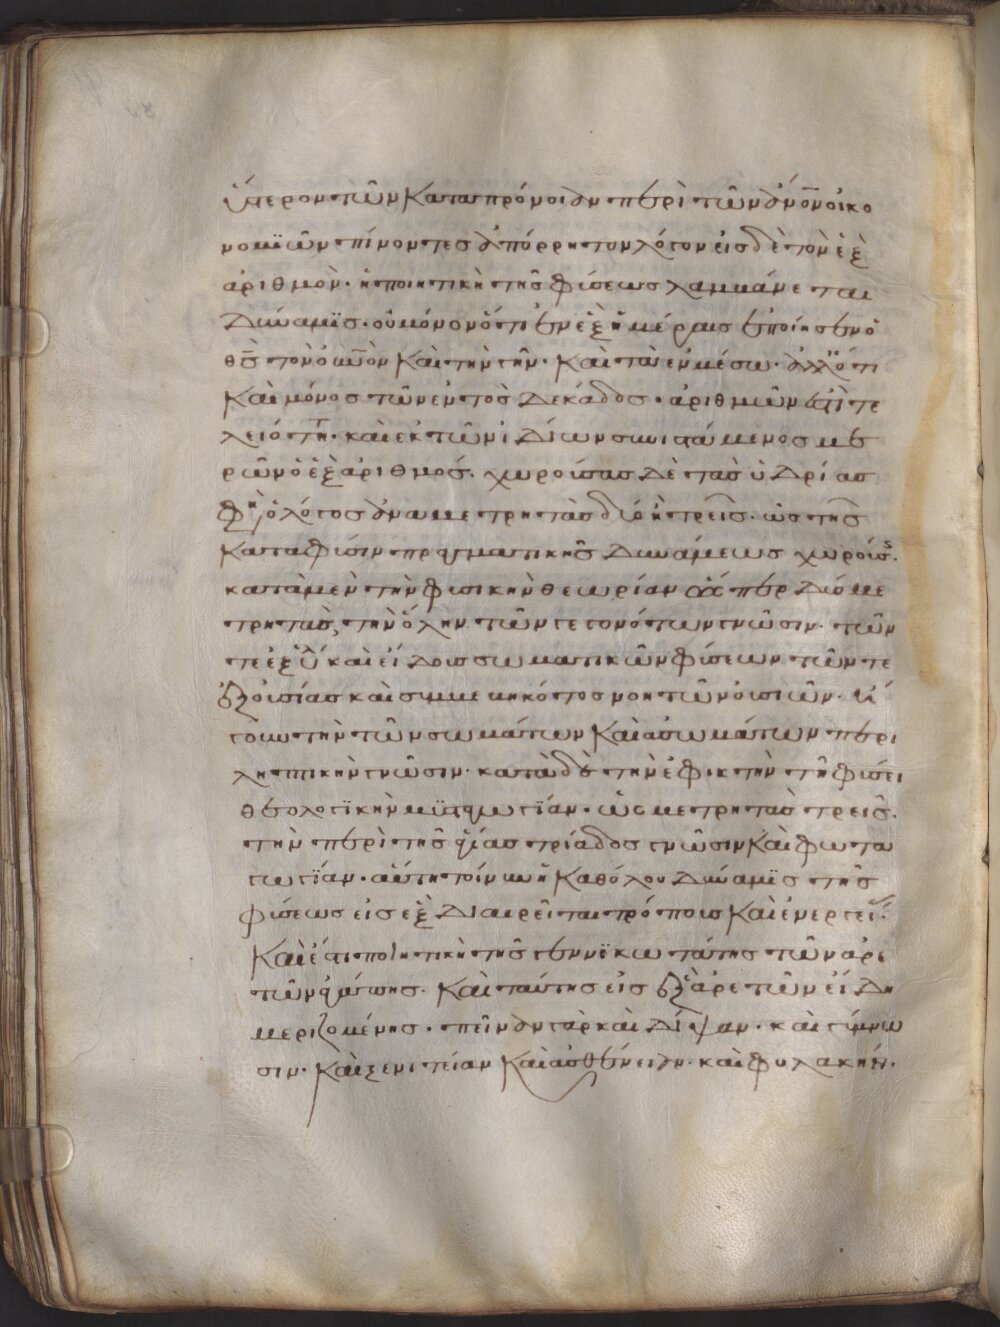 ὕστερον τῶν κατὰ πρόνοιαν περὶ τῶν ἀν̅ο̅ν̅ οἰκο
νομιῶν πίνοντες ἀπόρρητον λόγον εἰς δὲ τὸν ἓξ
ἀριθμὸν· ἡ ποιητικὴ τῆς φύσεως λαμβάνεται
δύναμϊς· οὐ μόνον ὅτι ἐν ἓξ ἡμέραις ἐποίησεν ὁ
θς̅ τὸν οὐ̅ν̅ον καὶ τὴν γῆν· καὶ τὰ ἐν μέσω· ἀλλ' ὅτι
καὶ μόνος τῶν ἐντὸς δεκάδος· ἀριθμῶν ἐστὶ τε
λειότ· καὶ ἐκ τῶν ἰδίων συνιστάμενος με
ρῶν ὁ ἓξ ἀριθμός· χωρούσας δὲ τὰς ὑδρίας
φη ὁ λόγος ἀνὰ μετρητὰς δύο ἢ τρεῖς· ὡς τῆς
κατὰ φύσιν πραγματικῆς δυνάμεως χωρούσ·
κατὰ μὲν τὴν φυσικὴν θεωρίαν ὥσπερ δύο με
τρητὰς, τὴν ὅλην τῶν γεγονότων γνῶσιν· τῶν
τε ἐξ ὕλ καὶ εἴδους σωματικῶν φύσεων τῶν τε
ἐξ οὐσίας καὶ συμβεβηκότος νοητῶν οὐσιῶν·
γουν τὴν τῶν σωμάτων καὶ ἀσωμάτων περι
ληπτικὴν γνῶσιν· κατὰ δὲ τὴν ἐφικτὴν τῆ φύσει
θεολογϊκὴν μϋσταγωγΐαν· ὡς μετρητὰς τρεῖς·
τὴν περὶ τῆς ἁγίας τριάδος γνῶσιν καὶ φωτα
γωγΐαν· αὕτη τοίνυν ἡ καθόλου δύναμϊς τῆς
φύσεως εἰς ἓξ διαιρεῖται τρόπους καὶ ἐνεργεί
καὶ ἔστι ποιητικὴ τῆς γεννϊκωτάτης τῶν ἀρε
τῶν ἀγάπης· καὶ ταύτης εἰς ἓξ ἀρετῶν εἴδη
μεριζομένης· πεῖναν γὰρ καὶ δίψαν· καὶ γύμνω
σιν· καὶ ξενιτείαν καὶ ἀσθένειαν· καὶ φυλακὴν·